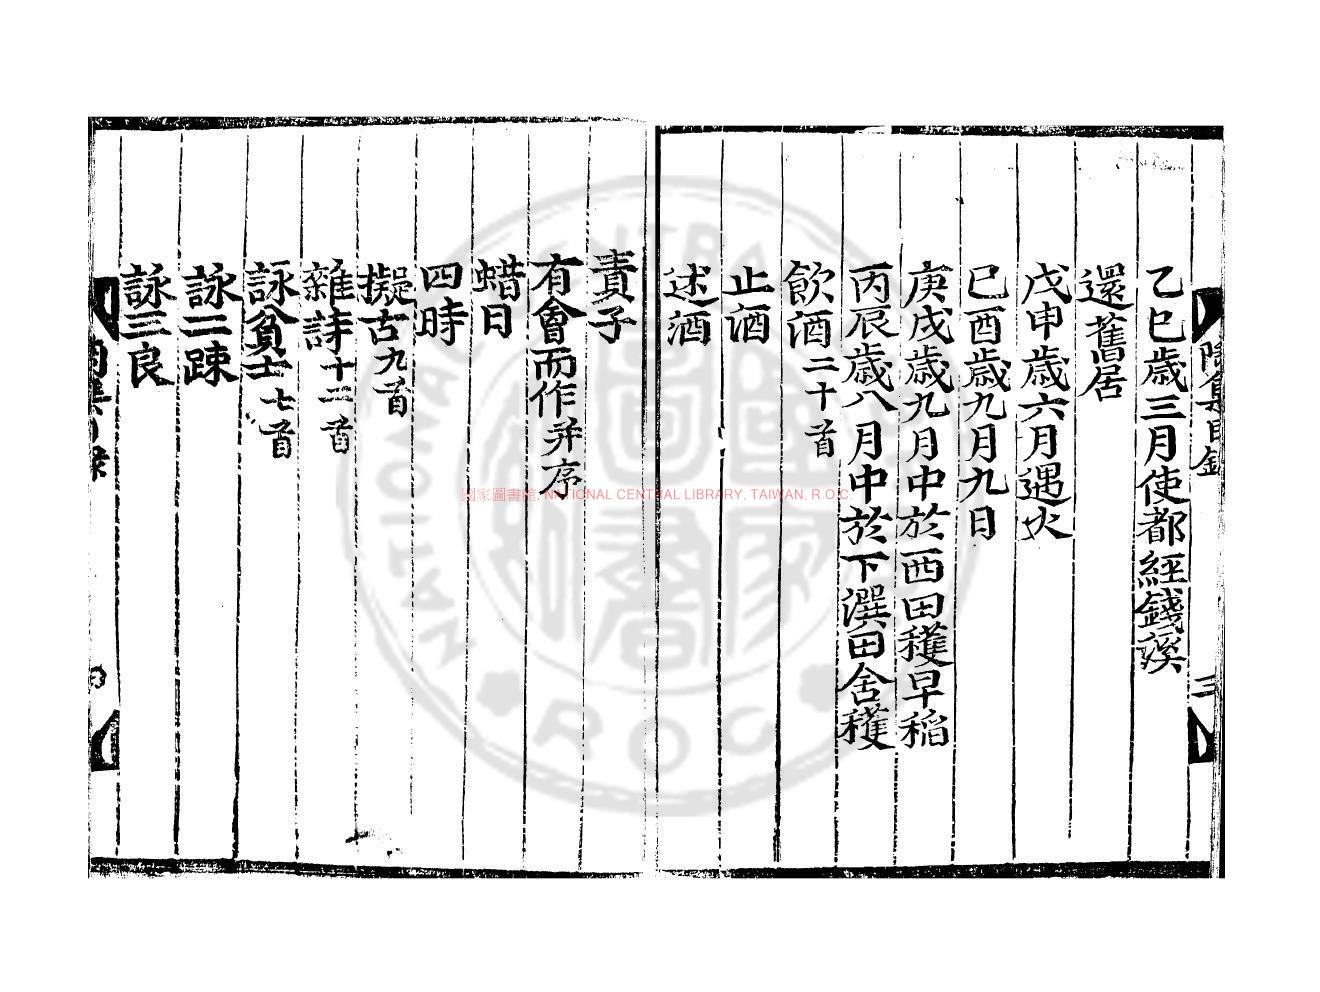 陶集目錄
三
乙巳歲三月使都經錢溪
還舊居
戊申歲六月遇火
己酉歲九月九日
庚戌歲九月中於西田穫早稻
丙辰歲八月中於下潠田舍穫
飲酒二十首
止酒
述酒
責子
有會而作并序
蜡日
四時
擬古九首
雜詩十二首
詠貧士七首
詠二疎
詠三良
國家圖書館, NATIONAL CENTRAL LIBRARY, TAIWAN, R.O.C.